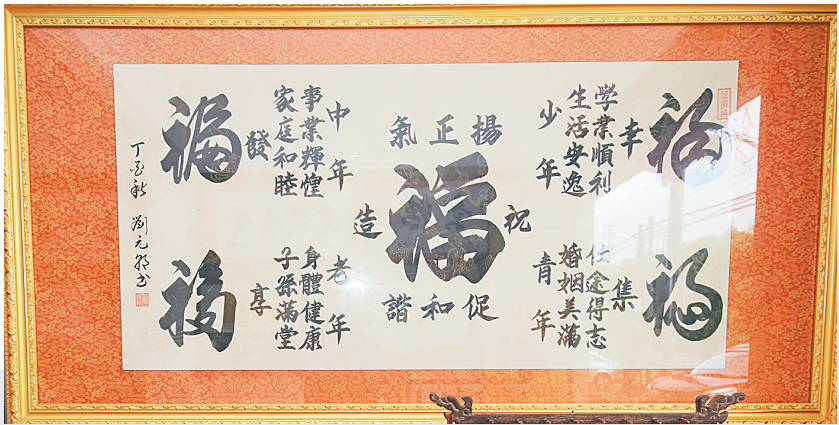 福
幸
學業順利
生活安逸
少年
福
集
仕途得志
婚姻美滿
青年
揚正氣
祝福造
促和諧
中年
事業輝煌
家庭和睦
發
福
老年
身體健康
子孫滿堂
享
福
丁 秋 劉元 書